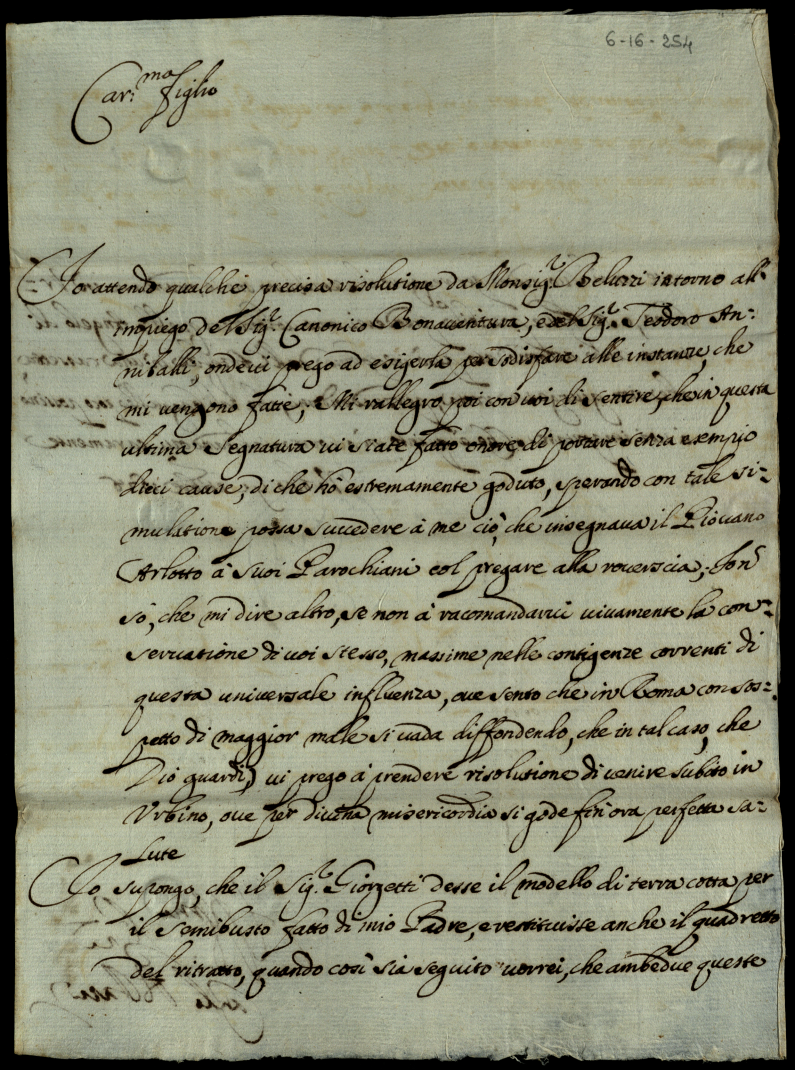 6-16-254
Car.mo figlio
Io attendo qualche precisa risolutione da Monsig.r Beluzzi intorno all'
impiego del Sig.r Canonico Bonaventura, e del Sig.r Teodoro An=
niballi, onde vi prego ad esigerla per sodisfare alle instanze, che
mi vengono fatte; Mi rallegro poi con voi di sentire, che in questa
ultima Segnatura vi siate fatto onore di portare senza esempio
dieci cause, di che hò estremamente goduto, sperando con tale si=
mulatione possa succedere à me ciò, che insegnava il Piovano
Arlotto à Suoi Parochiani col pregare alla roverscia; Non
sò, che mi dire altro, se non à racomandarvi vivamente la con=
servatione di voi stesso, massime nelle contigenze correnti di
questa universale influenza, ove sento che in Roma con sos=
petto di maggior male si vada diffondendo, che in tal caso, che
Dio guardi, vi prego à prendere risolutione di venire subito in
Urbino, ove per divina misericordia si gode fin'ora perfetta sa=
lute
Io supongo, che il Sig.r Giorzetti desse il modello di terra cotta per
il Semibusto fatto di mio Padre, e restituisse anche il quadretto
del ritratto, quando così sia seguito vorrei, che ambedue queste